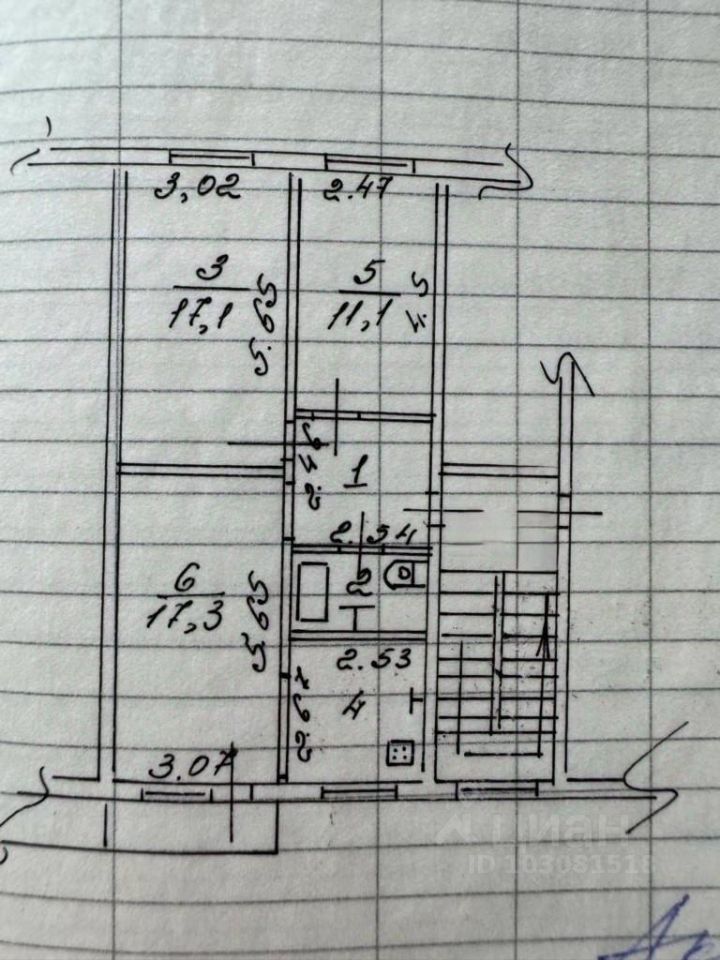 3,02
2.47
3
17,1
5.65
5
11,1
4.5
2.46
1
2.54
2
6
17,3
5.65
2.53
2.67
4
3.07
ЦИАН
ID 103081518